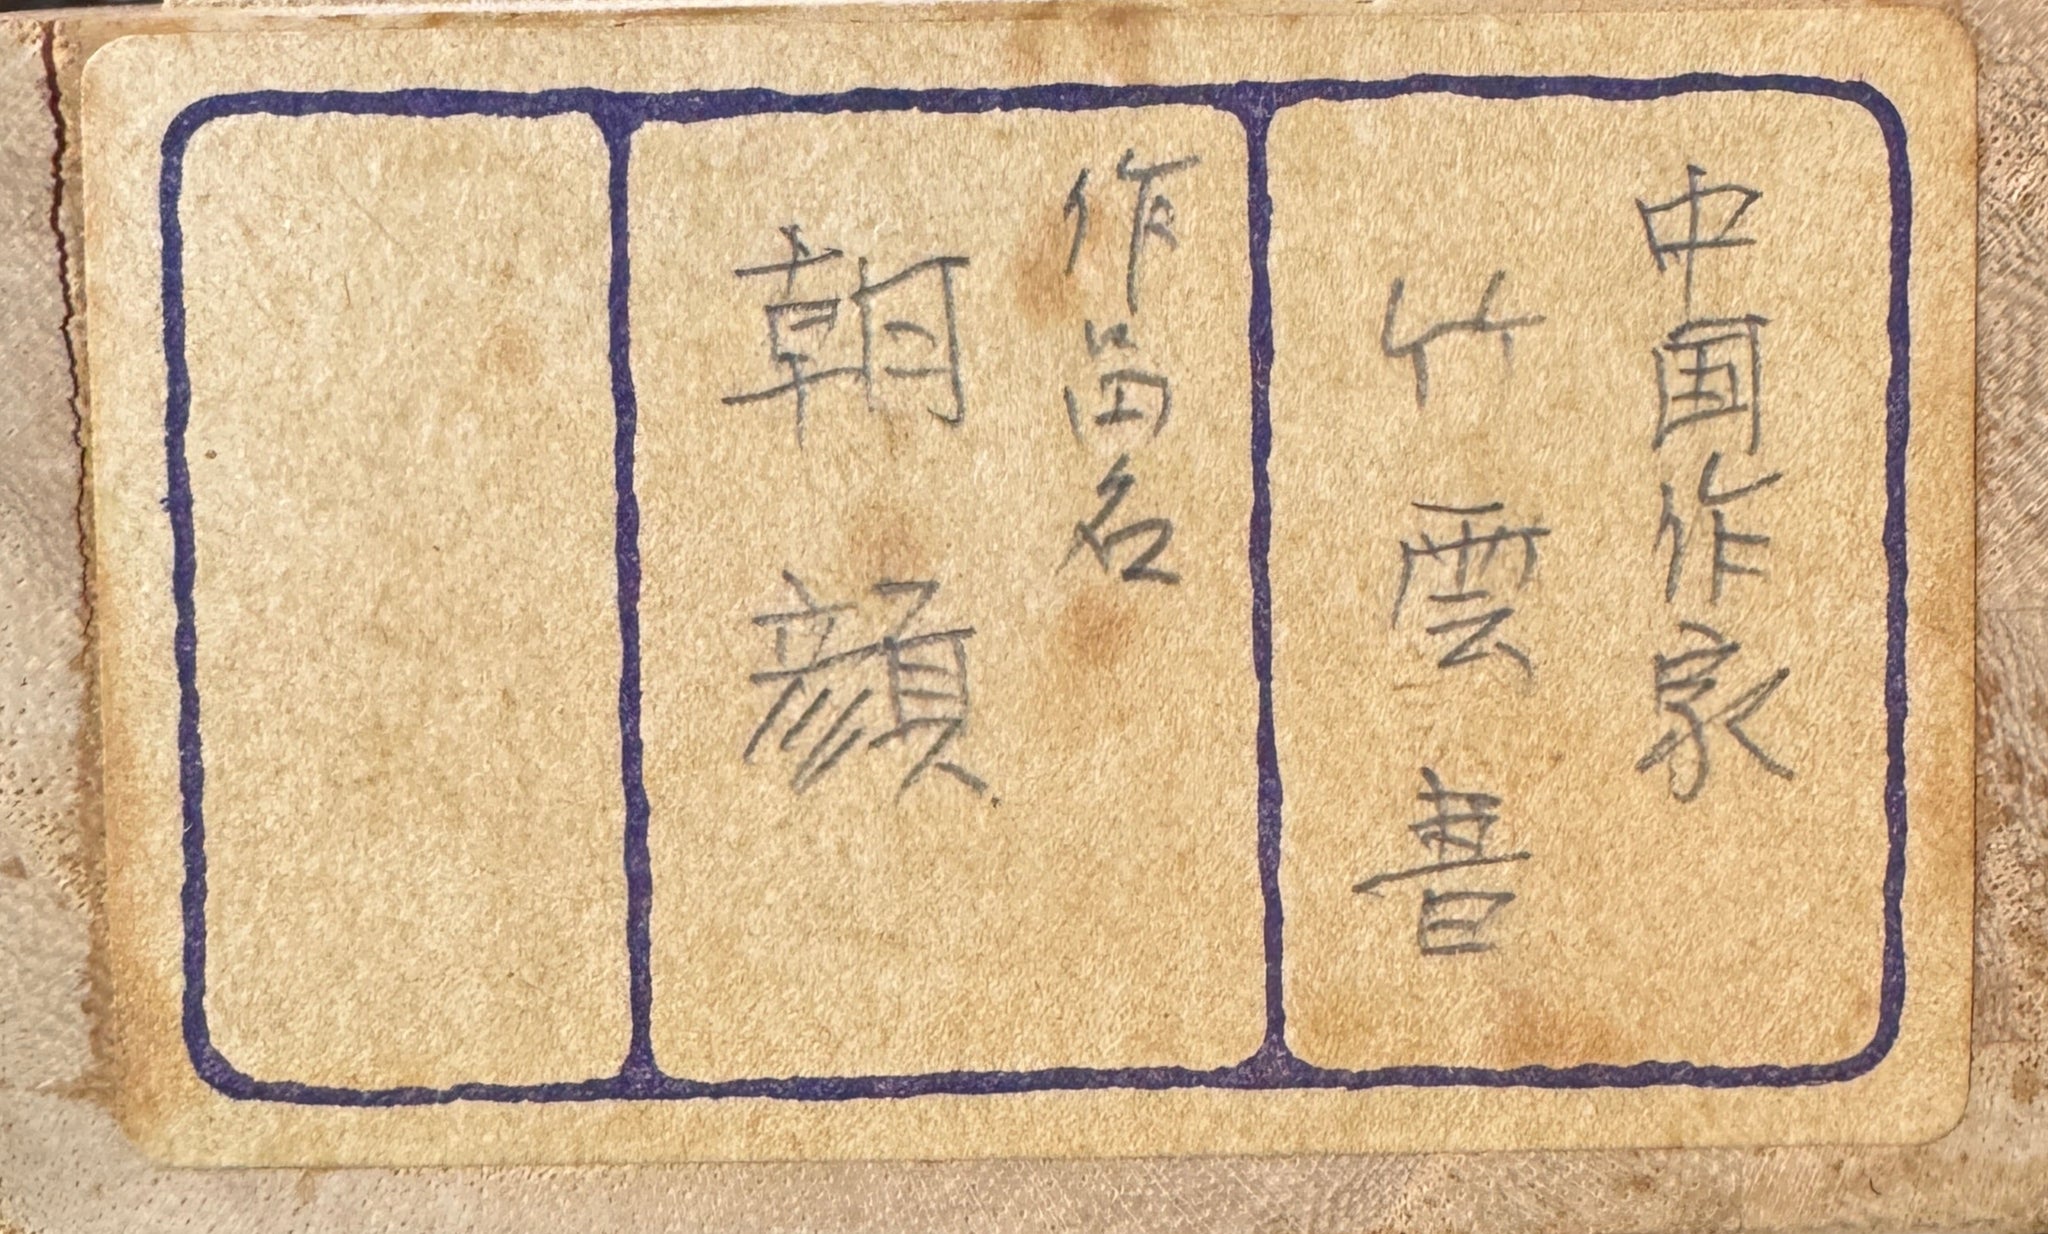 中国作家
竹雲書
作品名
朝顔